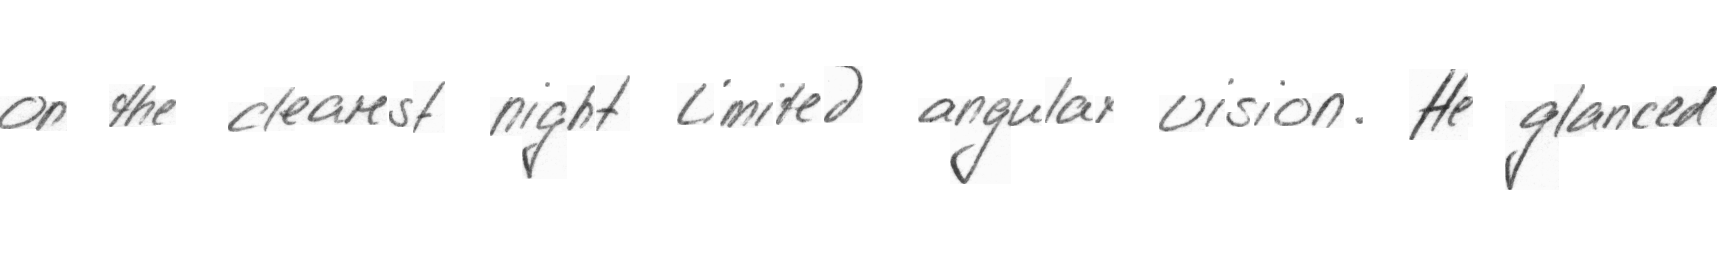 on the clearest night limited angular vision. He glanced